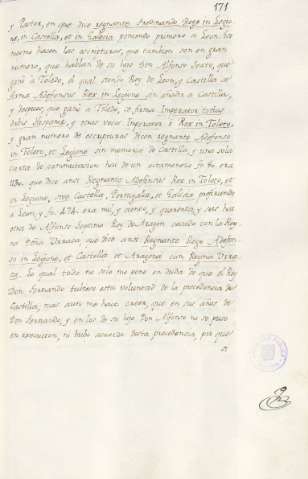 171
y Partes, en que dice regnante Ferdinando Rege in Legio
ne, in Castella, et in Galecia poniendo primero a Leon. Lo
mismo hacen las escrituras, que tambien son en gran
numero, que hablan de su hijo Don Alfonso Sexto, que
ganó a Toledo, el qual siendo Rey de Leon, y Castilla se
firma Aldefonsus Rex in Legione, sin añadir a Castilla,
y despues, que ganó a Toledo, se firma Imperator totius
Hispanie, y otras veces Imperator o Rex in Toleto,
y gran numero de escrituras dicen regnante Adefonso
in Toleto, et Legione sin memoria de Castilla, y una sola
carta de commutacion hai de un
que dice ansi Regnante Aldefonsus Rex in Toleto, et
in Legione, sive Castella, Portugalie, et Galecia prefiriendo
a Leon, y fo. 474. era mil, y ciento, y quarenta, y seis hai
otra de Alfonso Septimo Rey de Aragon casado con la Rey
na Doña Urraca, que dice ansi Regnante Rege Adefon
so in Legione, et Castella et Aragone cum Regina Urra
ca. Lo qual todo no solo me pone en duda de que el Rey
Don Fernando tubiese esta voluntad de la precedencia de
Castilla, mas aun me hace creer, que en sus años de
Don Fernando, y en los de su hijo Don Alfonso no se puso
en execucion, ni hubo acuerdo desta precedencia, por que